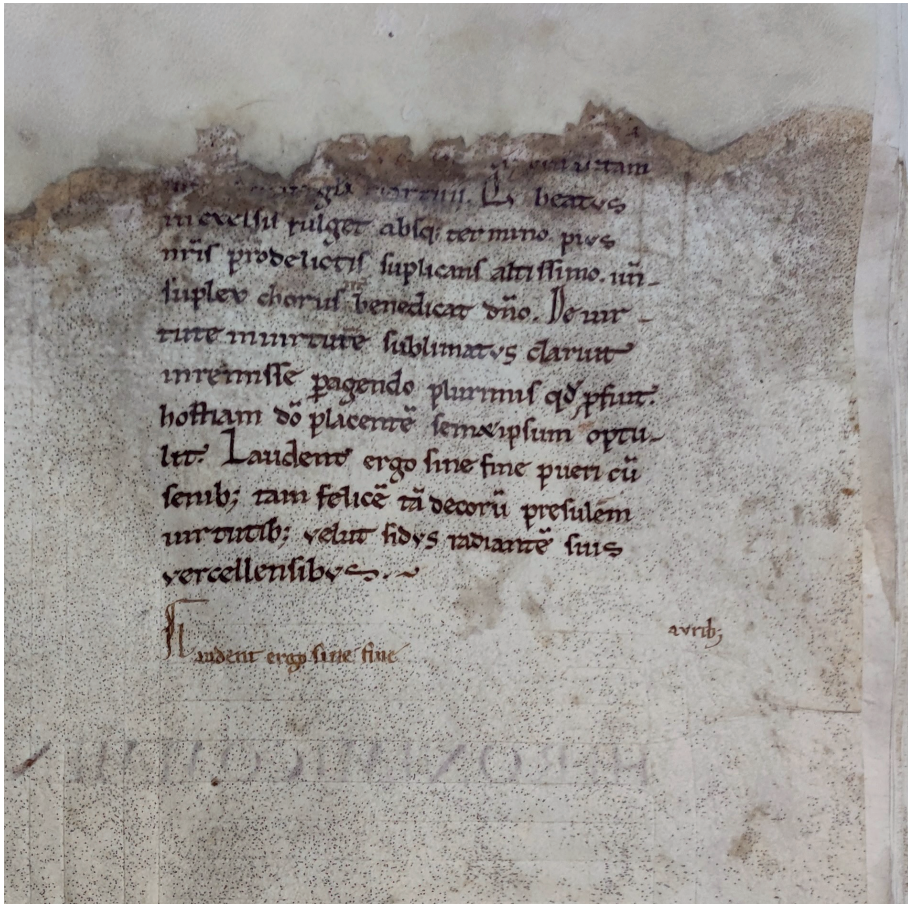 vitam
gła martirii. Beatus
in excelsis fulget absq; termino. pivs
nr̄is prodelictis suplicans altissimo. un̄-
suplex chorus benedicat dn̄o. De uir-
tute in uirtutē sublimatvs claruit
inremisse p̱agendo plurimis qđ p̱fuit.
hostiam dō placentē semetipsum optu-
lit. Laudent ergo sine fine pueri cū
senib; tam felicē tā decorū presulem
uirtutib; velut sidvs radiantē suis
vercellensibvs.
avrib;
audent ergo sine fine